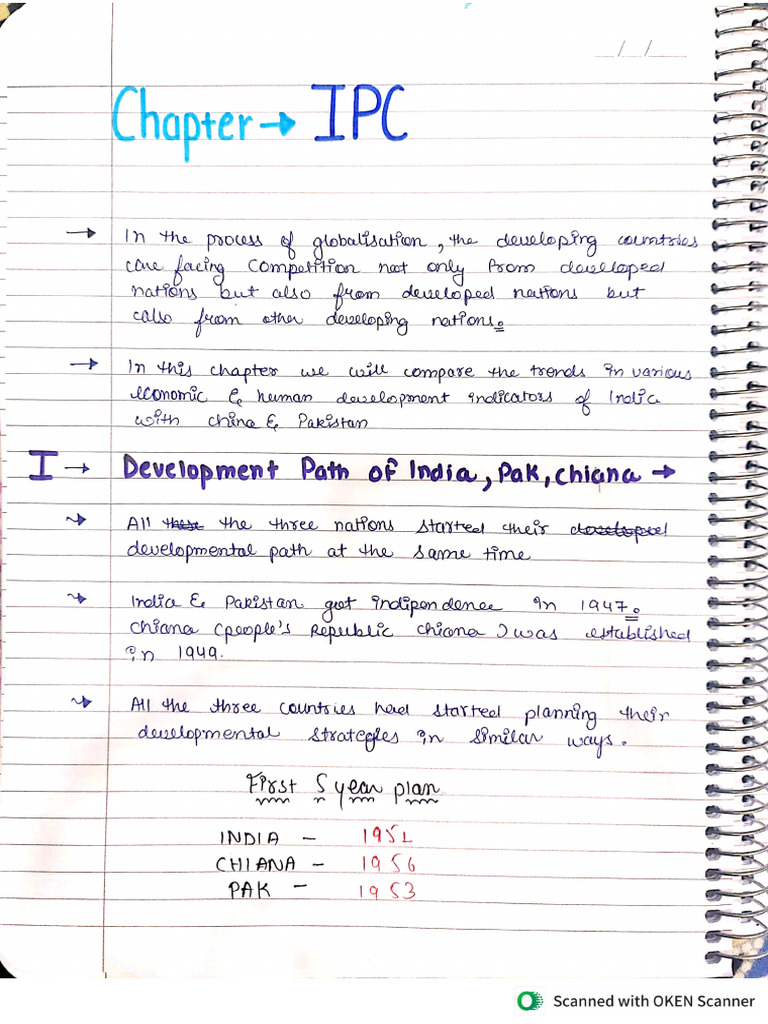 __/__/____
Chapter → IPC
→ In the process of globalisation, the developing countries
are facing competition not only from developed
nations but also from developed nations but
also from other developing nations.
→ In this chapter we will compare the trends in various
economic & human development indicators of India
with china & Pakistan
I → Development Path of India, Pak, Chiana →
All these the three nations started their developed
developmental path at the same time
India & Pakistan got indipendence in 1947.
Chiana (people's Republic chiana) was established
in 1949.
All the three countries had started planning their
developmental strategies in similar ways.
First 5 year plan
INDIA - 1951
CHIANA - 1956
PAK - 1953
Scanned with OKEN Scanner